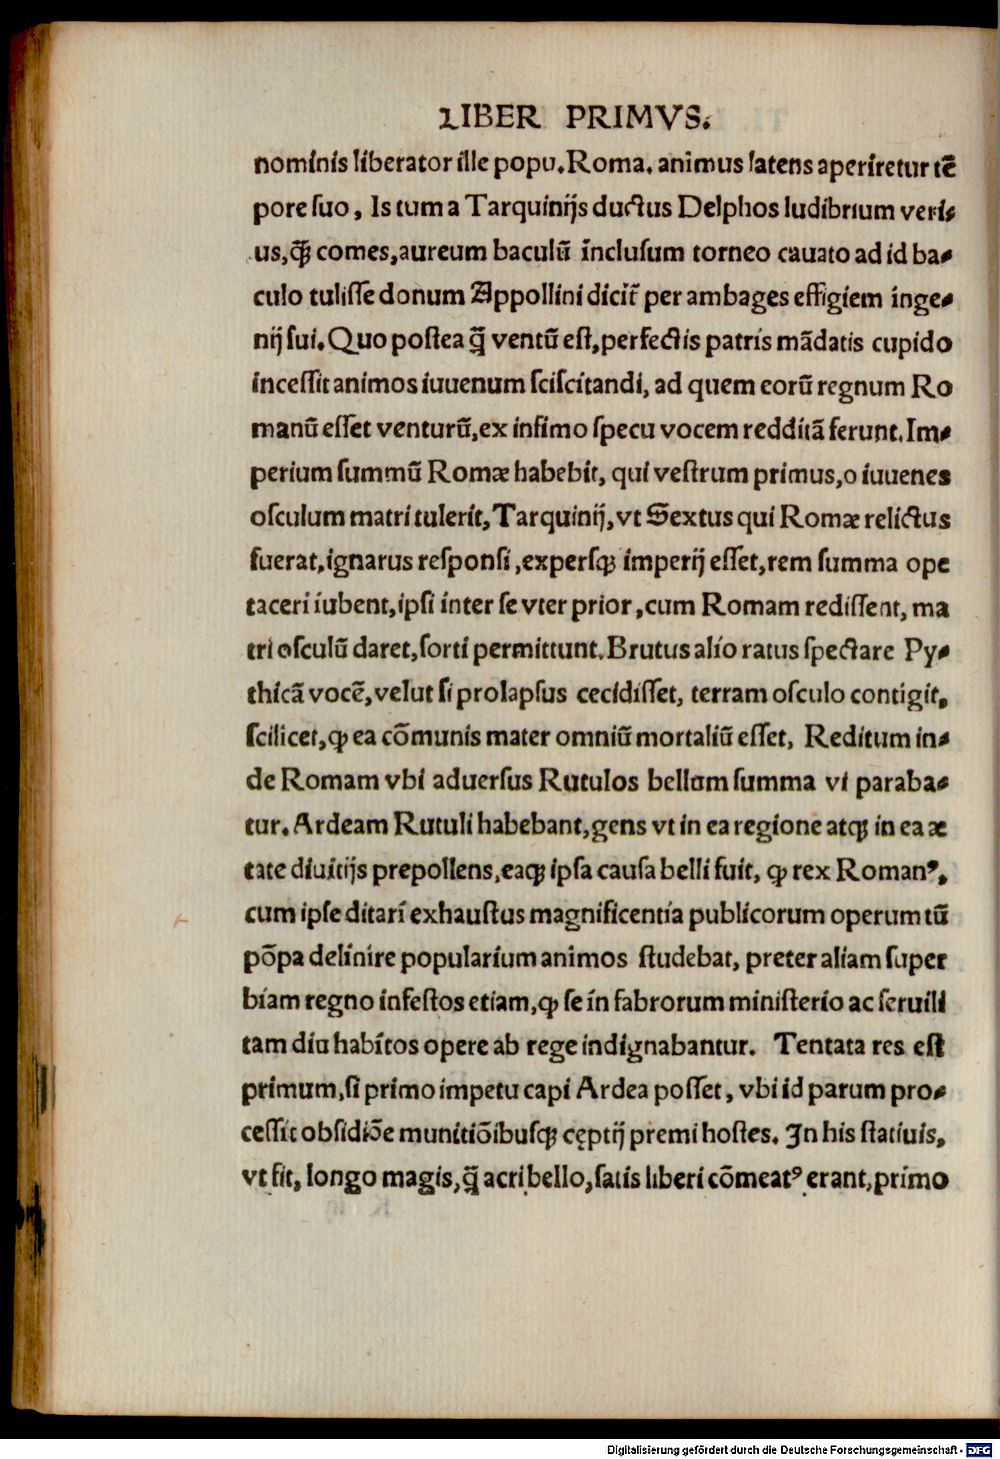 LIBER PRIMVS.
nominis liberator ille popu. Roma. animus latens aperiretur tẽ
pore suo, Is tum a Tarquinijs ductus Delphos ludibrium veri⸗
us, ꝙ̃ comes, aureum baculũ inclusum torneo cauato ad id ba⸗
culo tulisse donum Appollini dicit̃ per ambages effigiem inge⸗
nij sui. Quo postea q̃ ventũ est, perfectis patris mãdatis cupido
incessit animos iuuenum sciscitandi, ad quem eorũ regnum Ro
manũ esset venturũ, ex infimo specu vocem redditã ferunt. Im⸗
perium summũ Romæ habebit, qui vestrum primus, o iuuenes
osculum matri tulerit, Tarquinij, vt Sextus qui Romæ relictus
fuerat, ignarus responsi, expersqꝫ imperij esset, rem summa ope
taceri iubent, ipsi inter se vter prior, cum Romam redissent, ma
tri osculũ daret, sorti permittunt. Brutus alio ratus spectare Py⸗
thicã vocẽ, velut si prolapsus cecidisset, terram osculo contigit,
scilicet, ꝙ ea cõmunis mater omniũ mortaliũ esset, Reditum in⸗
de Romam vbi aduersus Rutulos bellum summa vi paraba⸗
tur. Ardeam Rutuli habebant, gens vt in ea regione atqꝫ in ea æ
tate diuitijs prepollens, eaqꝫ ipsa causa belli fuit, ꝙ rex Romanꝰ,
cum ipse ditari exhaustus magnificentia publicorum operum tũ
põpa delinire popularium animos studebat, preter aliam super
biam regno infestos etiam, ꝙ se in fabrorum ministerio ac seruili
tam diu habitos opere ab rege indignabantur. Tentata res est
primum, si primo impetu capi Ardea posset, vbi id parum pro⸗
cessit obsidiõe munitiõibusqꝫ cęptij premi hostes. In his statiuis,
vt fit, longo magis, q̃ acri bello, satis liberi cõmeatꝰ erant, primo
Digitalisierung gefördert durch die Deutsche Forschungsgemeinschaft - DFG